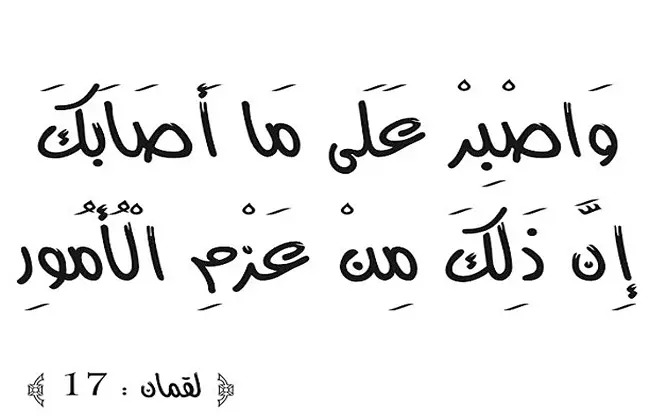 وَاصْبِرْ عَلَى مَا أَصَابَكَ
إِنَّ ذَلِكَ مِنْ عَزْمِ الْأُمُورِ
﴿ لقمان : 17 ﴾